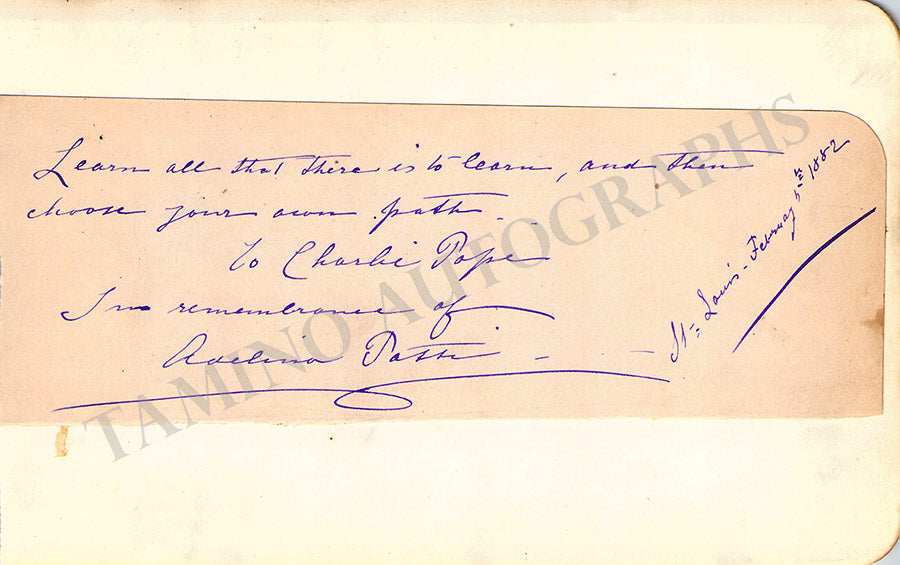 Learn all that there is to learn, and then
choose your own path.
To Charlie Pope
In remembrance of
Adelina Patti
St= Louis - February 5th 1882
TAMINO AUTOGRAPHS